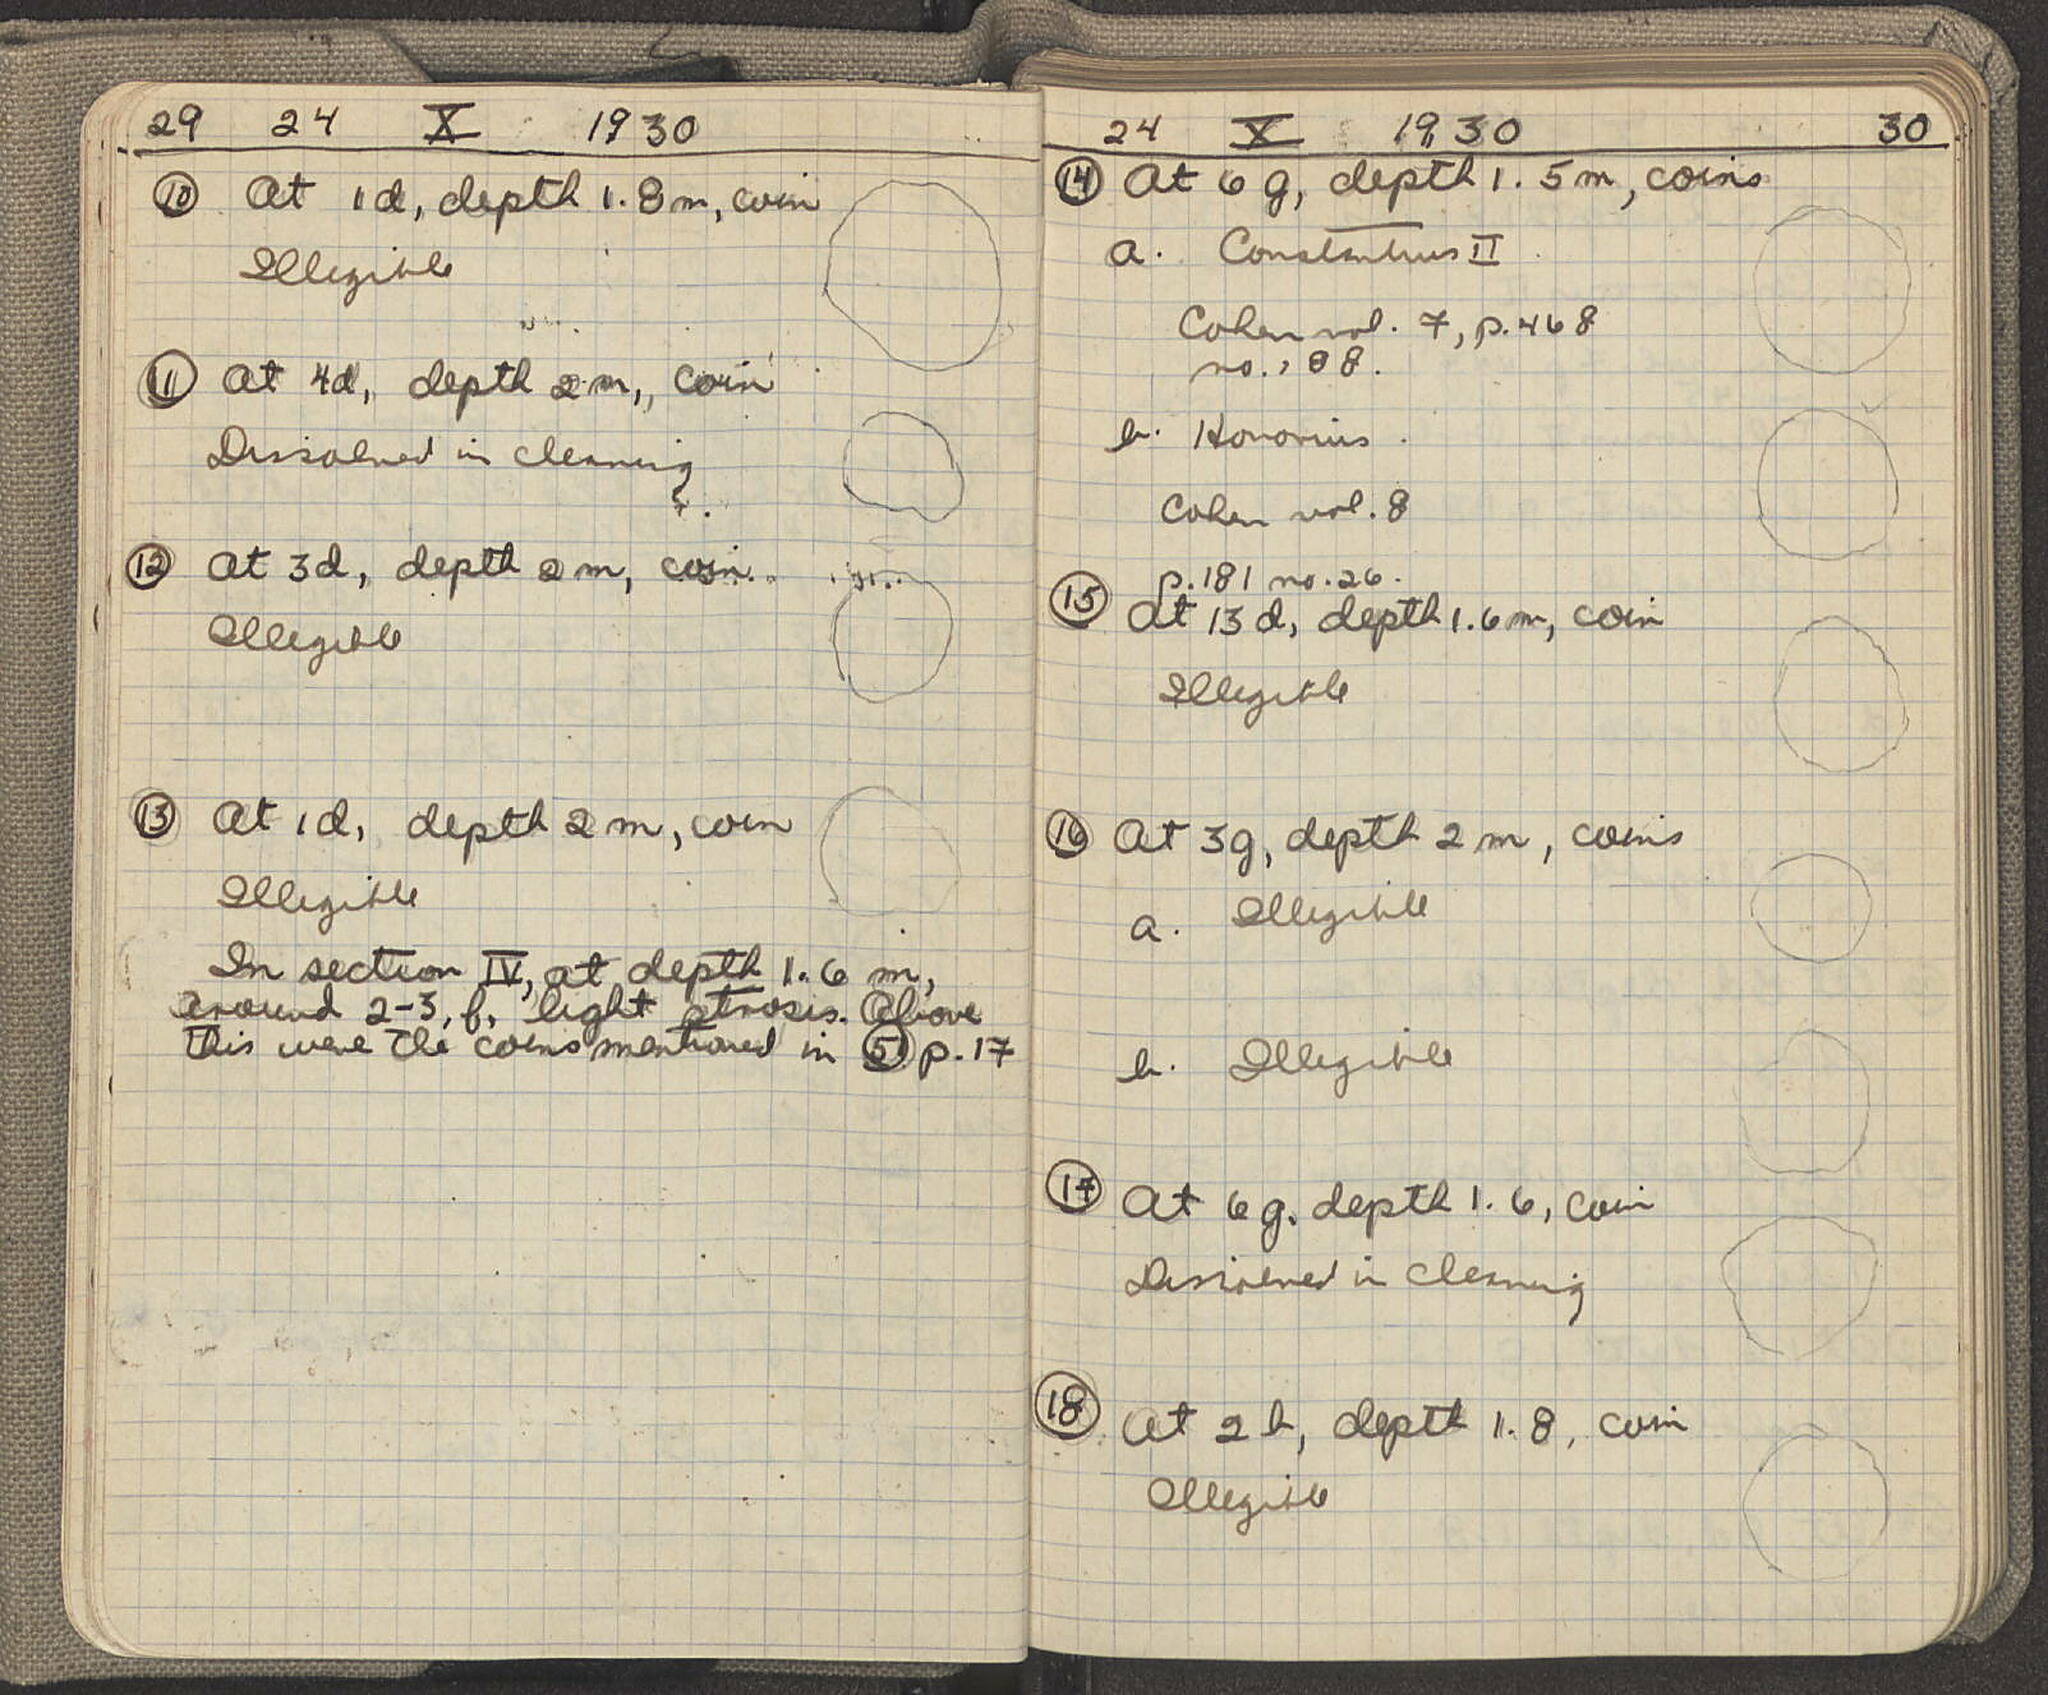 29 24 X 1930
10 At 1d, depth 1.8 m, coin
Illegible
11 At 4d, depth 2 m, coin
Dissolved in cleaning
12 At 3d, depth 2 m, coin.
Illegible
13 At 1d, depth 2 m, coin
Illegible
In section IV, at depth 1.6 m,
around 2-3, f, light strosis. Above
this were the coins mentioned in 5 p. 17
24 X 1930 30
14 At 6 g, depth 1.5 m, coins
a. Constantius II
Cohen vol. 7, p. 468
no.
b. Honorius
Cohen vol. 8
p. 181 no. 26.
15 At 13 d, depth 1.6 m, coin
Illegible
16 At 3g, depth 2 m, coins
a. Illegible
b. Illegible
17 At 6 g. depth 1.6, coin
Dissolved in cleaning
18 At 2 h, depth 1.8, coin
Illegible